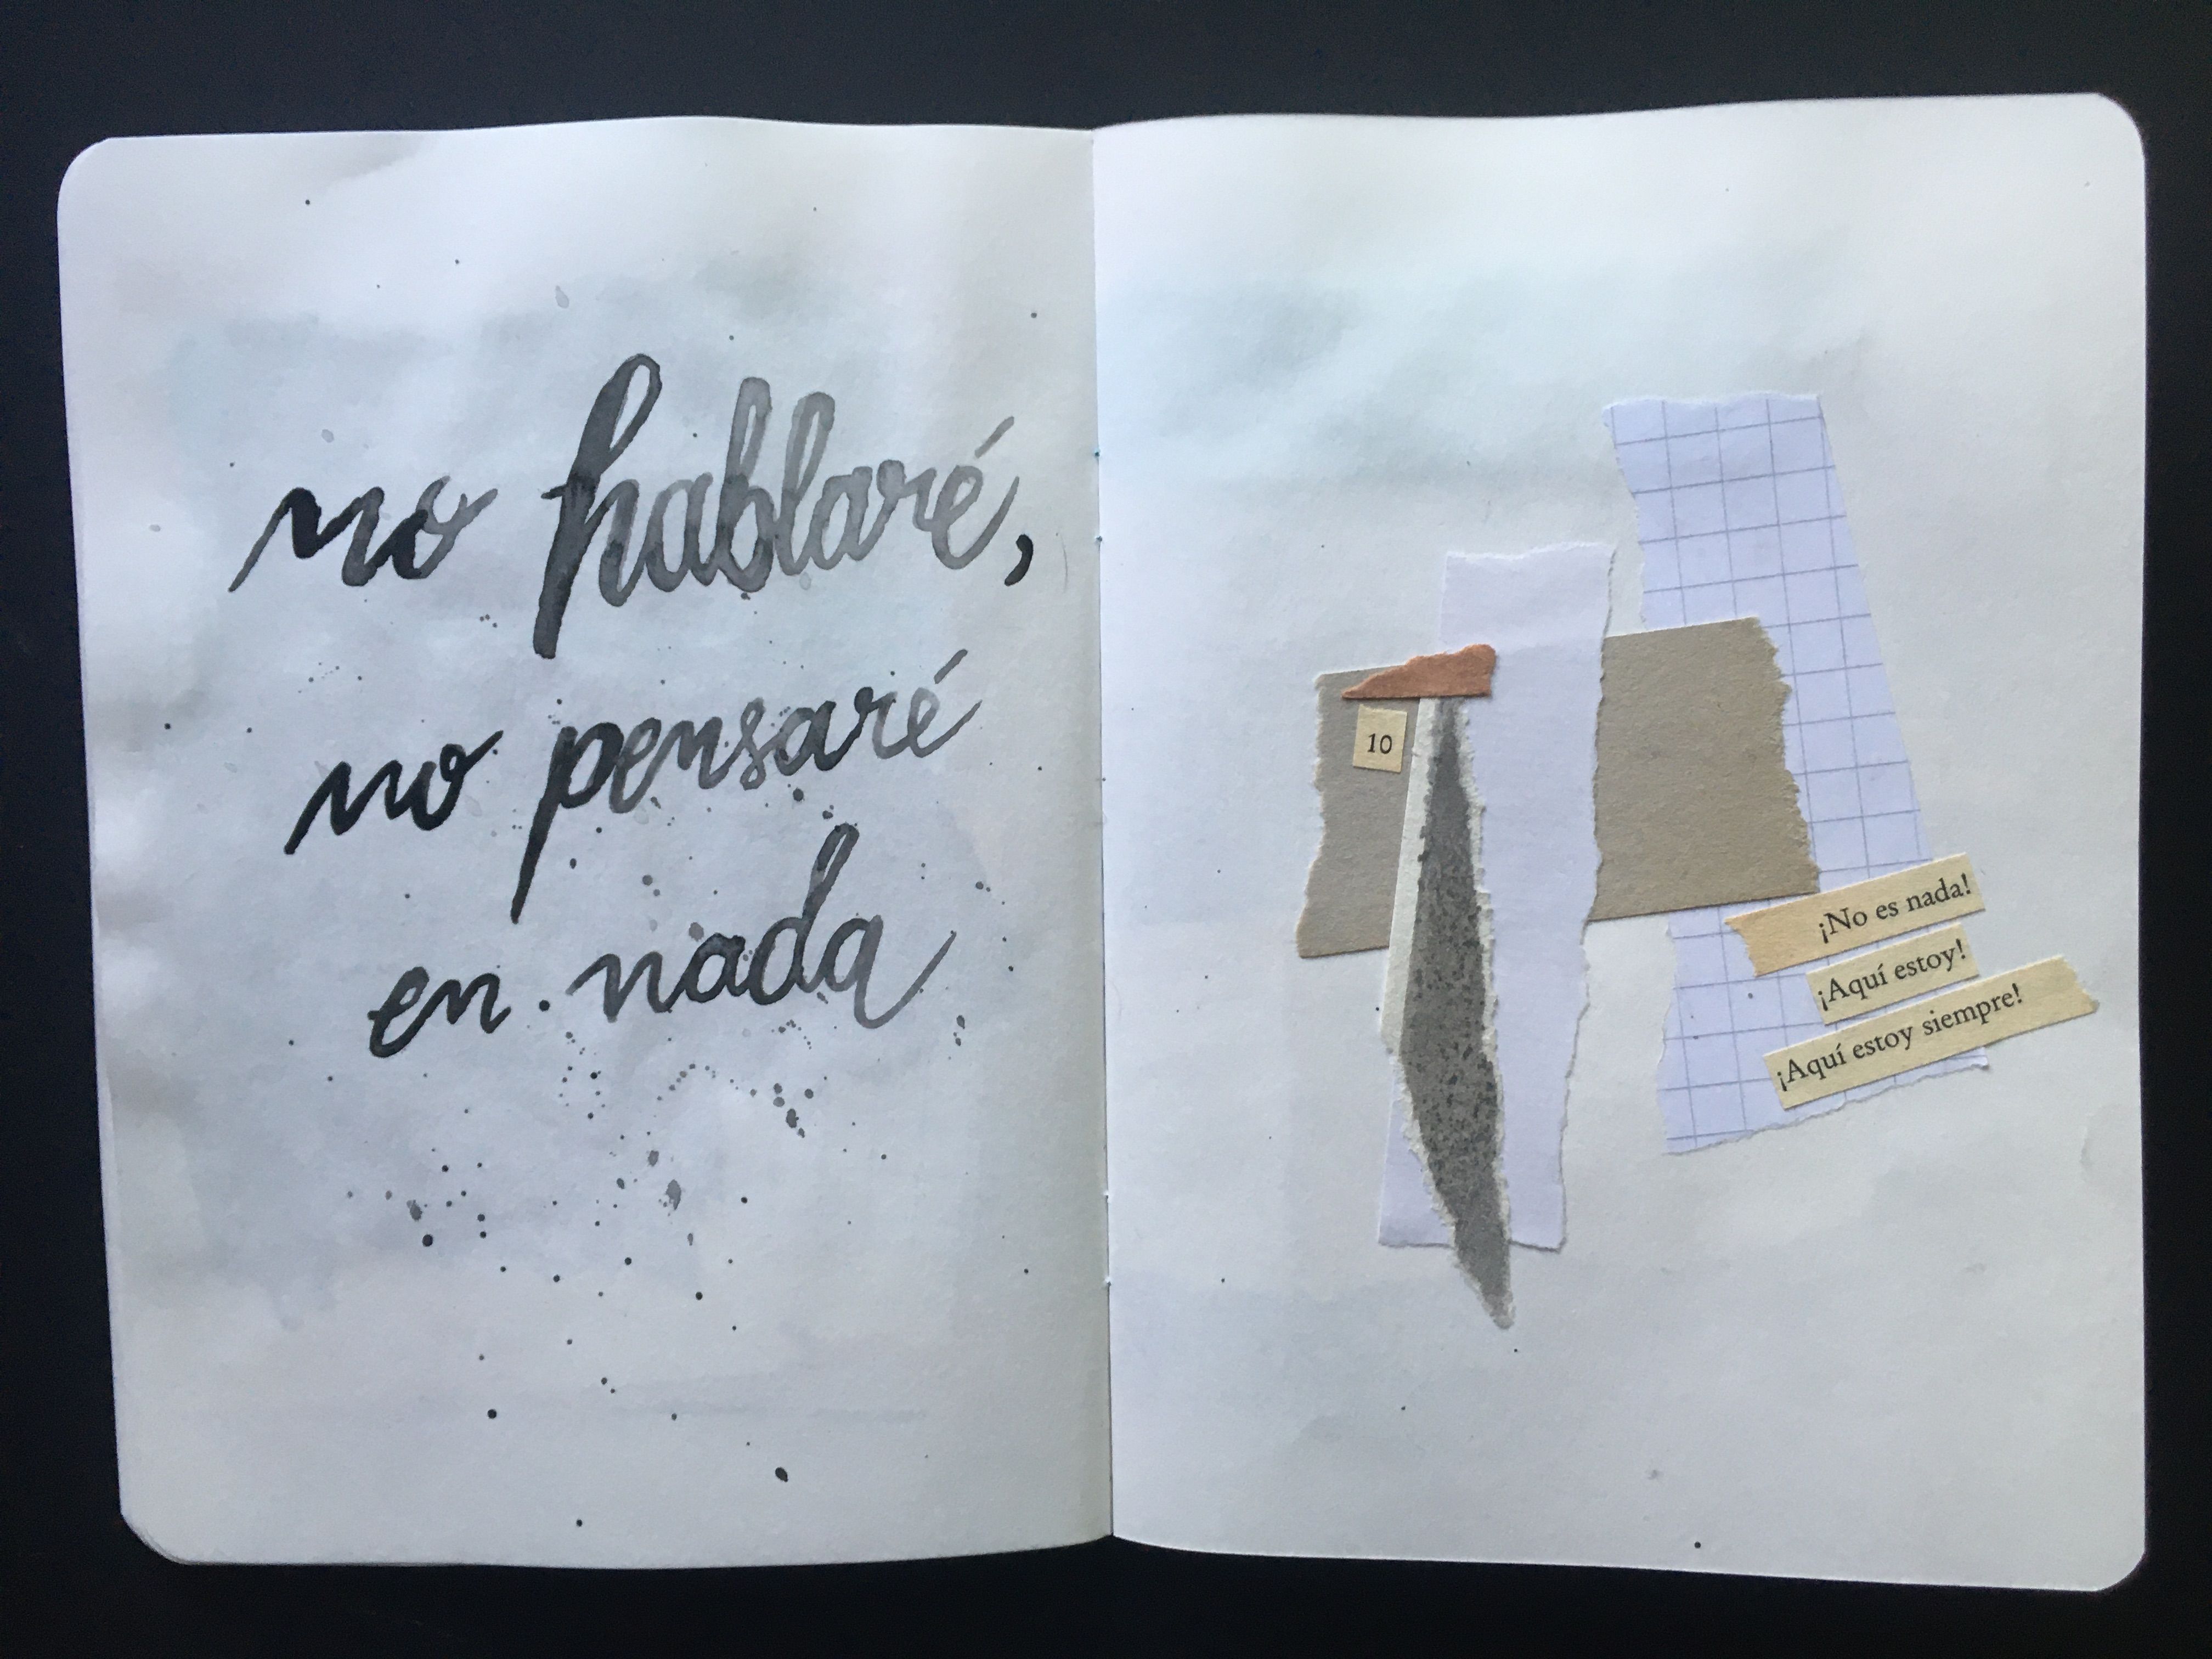 no hablaré,
no pensaré
en nada
10
¡No es nada!
¡Aquí estoy!
¡Aquí estoy siempre!